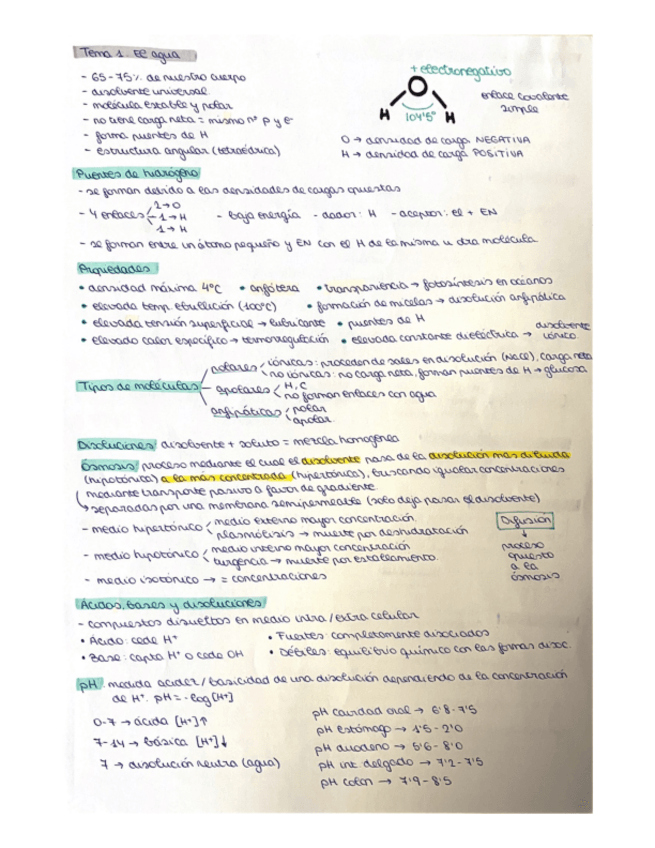 Tema 1. El agua
- 65-75% de nuestro cuerpo
- disolvente universal
- molécula estable y polar
- no tiene carga neta = mismo nº p y e-
- forma puentes de H
- estructura angular (tetraédrica)
+ electronegativo
O
H H
104'5º
enlace covalente
simple
O → densidad de carga NEGATIVA
H → densidad de carga POSITIVA
Puentes de hidrógeno
- se forman debido a las densidades de cargas opuestas
- 4 enlaces 2→O
1→H
1→H
- baja energía - dador: H - aceptor: el + EN
- se forman entre un átomo pequeño y EN con el H de la misma u otra molécula
Propiedades
• densidad máxima 4ºC • anfótera • transparencia → fotosíntesis en océanos
• elevada temp. ebullición (100ºC) • formación de micelas → disolución anfipática
• elevada tensión superficial → lubricante • puentes de H
• elevado calor específico → termorregulación • elevada constante dieléctrica → disolvente
iónico
Tipos de moléculas
polares iónicas: proceden de sales en disolución (NaCl), carga neta
no iónicas: no carga neta, forman puentes de H → glucosa
apolares H, C
no forman enlaces con agua
anfipáticas polar
apolar
Disoluciones: disolvente + soluto = mezcla homogénea
Ósmosis: proceso mediante el cual el disolvente pasa de la disolución más diluida
(hipotónica) a la más concentrada (hipertónica), buscando igualar concentraciones
mediante transporte pasivo a favor de gradiente
↳ separadas por una membrana semipermeable (solo deja pasar el disolvente)
- medio hipertónico medio externo mayor concentración
plasmólisis → muerte por deshidratación
- medio hipotónico medio interno mayor concentración
turgencia → muerte por estallamiento
- medio isotónico → = concentraciones
Difusión
↓
proceso
opuesto
a la
ósmosis
Ácidos, bases y disoluciones
- compuestos disueltos en medio intra/extra celular
• Ácido: cede H+ • Fuertes: completamente disociados
• Base: capta H+ o cede OH • Débiles: equilibrio químico con las formas disoc.
pH: medida acidez/basicidad de una disolución dependiendo de la concentración
de H+. pH = -log[H+]
0-7 → ácida [H+]↑
7-14 → básica [H+]↓
7 → disolución neutra (agua)
pH cavidad oral → 6'8-7'5
pH estómago → 1'5-2'0
pH duodeno → 5'6-8'0
pH int. delgado → 7'2-7'5
pH colon → 7'9-8'5